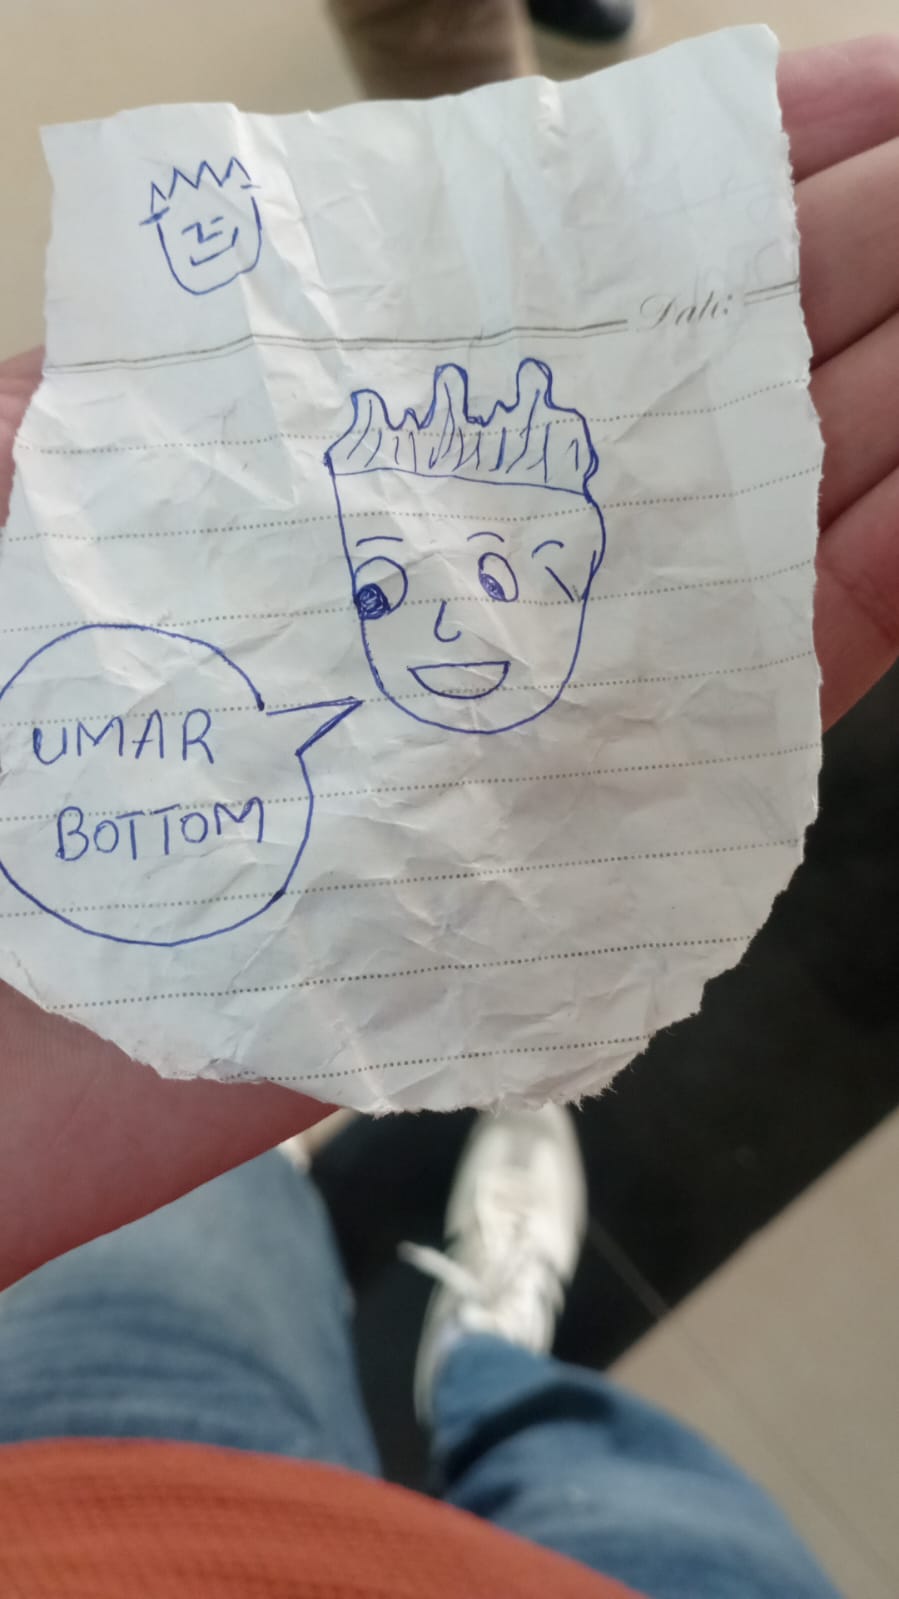 Date:
UMAR
BOTTOM